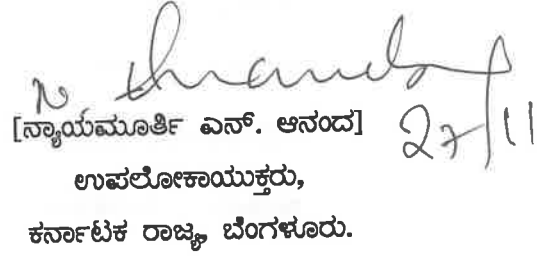 N Ananda
[ನ್ಯಾಯಮೂರ್ತಿ ಎನ್. ಆನಂದ]
27/11
ಉಪಲೋಕಾಯುಕ್ತರು,
ಕರ್ನಾಟಕ ರಾಜ್ಯ, ಬೆಂಗಳೂರು.